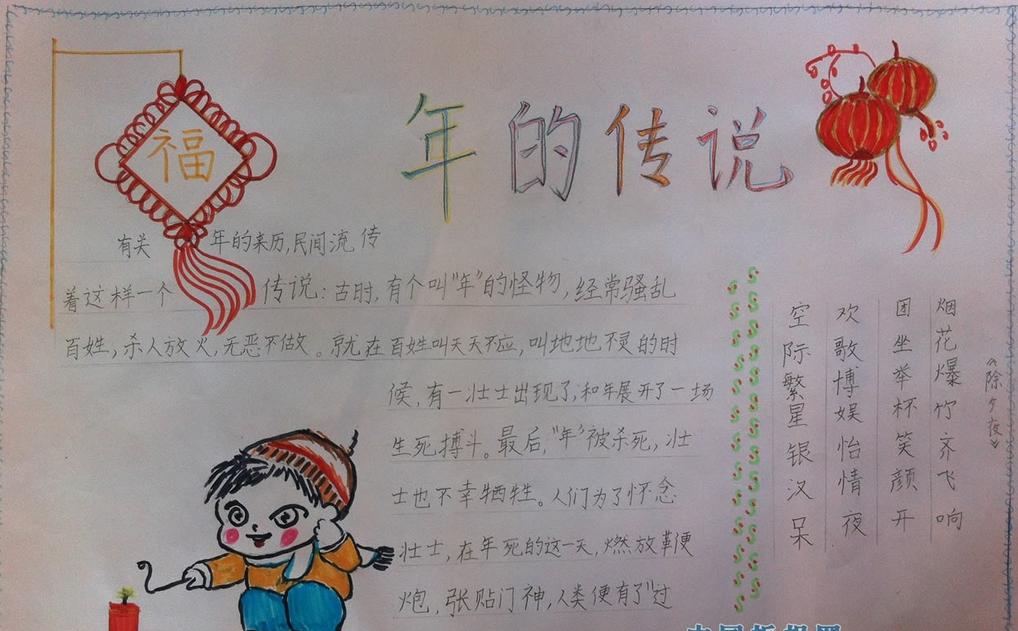 年的传说
福
有关年的来历,民间流传
着这样一个传说:古时,有个叫"年"的怪物,经常骚乱
百姓,杀人放火,无恶不做。就在百姓叫天天不应,叫地地不灵的时
候,有一壮士出现了,和年展开了一场
生死搏斗。最后,"年"被杀死,壮
士也不幸牺牲。人们为了怀念
壮士,在年死的这一天,燃放鞭
炮,张贴门神,人类便有了"过
《除夕夜》
烟花爆竹齐飞响
团坐举杯笑颜开
欢歌博娱怡情夜
空际繁星银汉呆